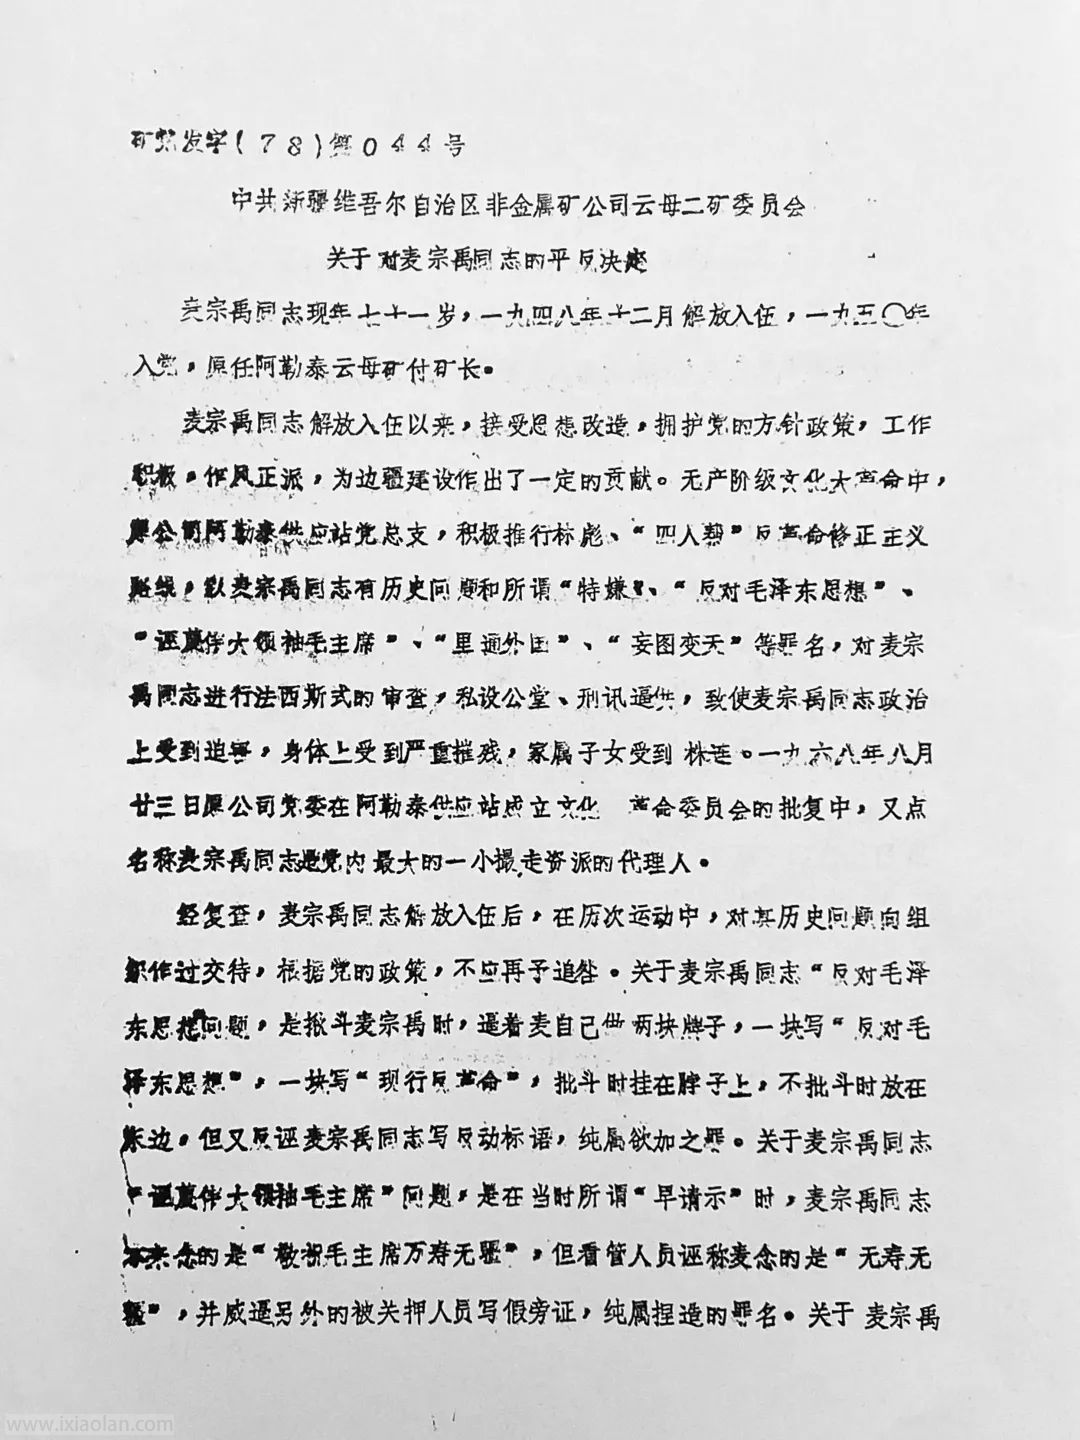 矿党发字(78)第044号
中共新疆维吾尔自治区非金属矿公司云母二矿委员会
关于对麦宗禹同志的平反决定
麦宗禹同志现年七十一岁，一九四八年十二月解放入伍，一九五〇年
入党，原任阿勒泰云母矿付矿长。
麦宗禹同志解放入伍以来，接受思想改造，拥护党的方针政策，工作
积极，作风正派，为边疆建设作出了一定的贡献。无产阶级文化大革命中，
原公司阿勒泰供应站党总支，积极推行林彪、“四人帮”反革命修正主义
路线，以麦宗禹同志有历史问题和所谓“特嫌”、“反对毛泽东思想”、
“诬蔑伟大领袖毛主席”、“里通外国”、“妄图变天”等罪名，对麦宗
禹同志进行法西斯式的审查，私设公堂、刑讯逼供，致使麦宗禹同志政治
上受到迫害，身体上受到严重摧残，家属子女受到株连。一九六八年八月
廿三日原公司党委在阿勒泰供应站成立文化 革命委员会的批复中，又点
名称麦宗禹同志是党内最大的一小撮走资派的代理人。
经复查，麦宗禹同志解放入伍后，在历次运动中，对其历史问题向组
织作过交待，根据党的政策，不应再予追咎。关于麦宗禹同志“反对毛泽
东思想”问题，是揪斗麦宗禹时，逼着麦自己做两块牌子，一块写“反对毛
泽东思想”，一块写“现行反革命”，批斗时挂在脖子上，不批斗时放在
床边，但又反诬麦宗禹同志写反动标语，纯属欲加之罪。关于麦宗禹同志
“诬蔑伟大领袖毛主席”问题，是在当时所谓“早请示”时，麦宗禹同志
本来念的是“敬祝毛主席万寿无疆”，但看管人员诬称麦念的是“无寿无
疆”，并威逼另外的被关押人员写假旁证，纯属捏造的罪名。关于麦宗禹
www.ixiaolan.com